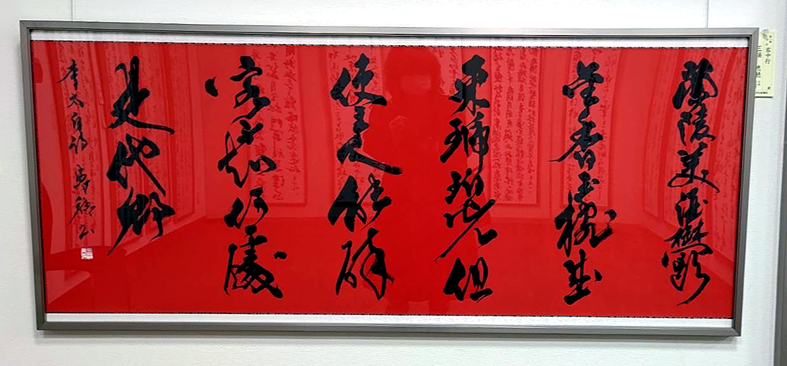 蘭陵美酒鬱
金香玉椀盛
来琥珀光但
使主人能酔
客不知何處
是他郷
李太白詩
客中行